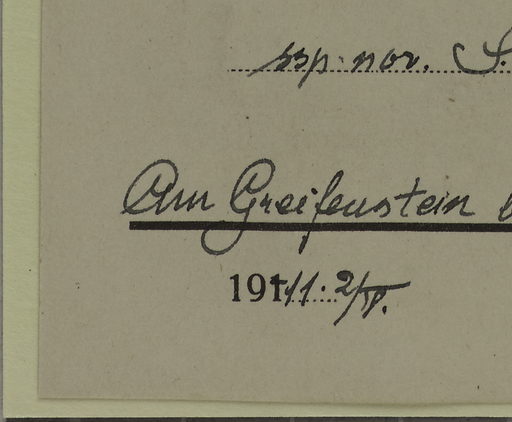 ssp. nor. S.
Am Greifenstein
1911. 2/IV.